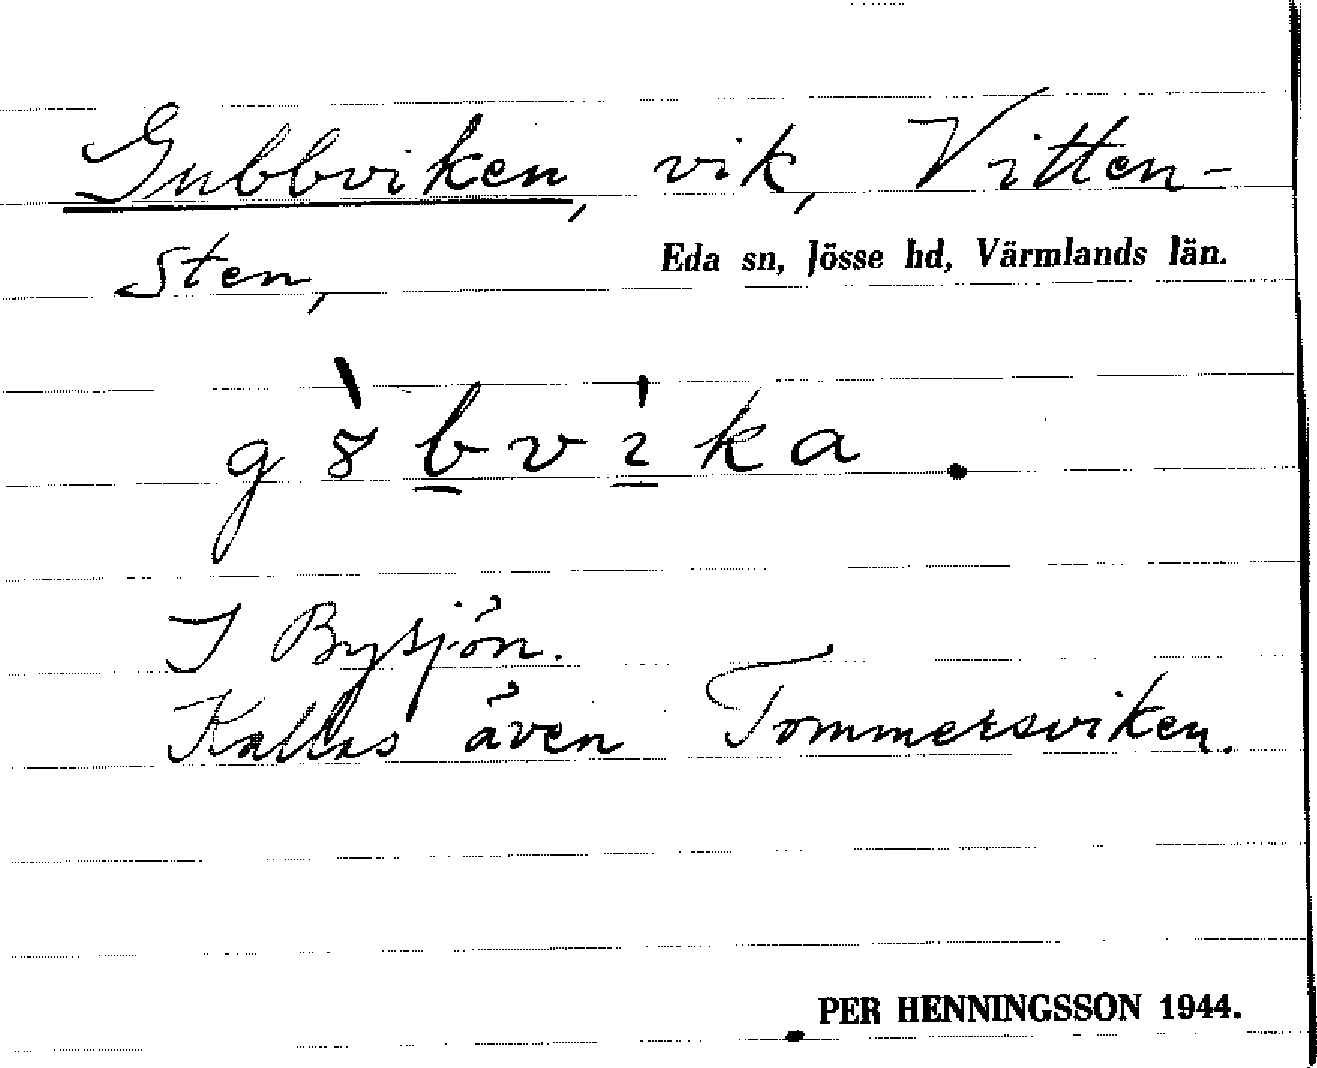 Gubbviken, vik, Vitten-
sten,
Eda sn, Jösse hd, Värmlands län.
g8̀bvika.
I Bysjön.
Kallas även Tommersviken.
PER HENNINGSSON 1944.